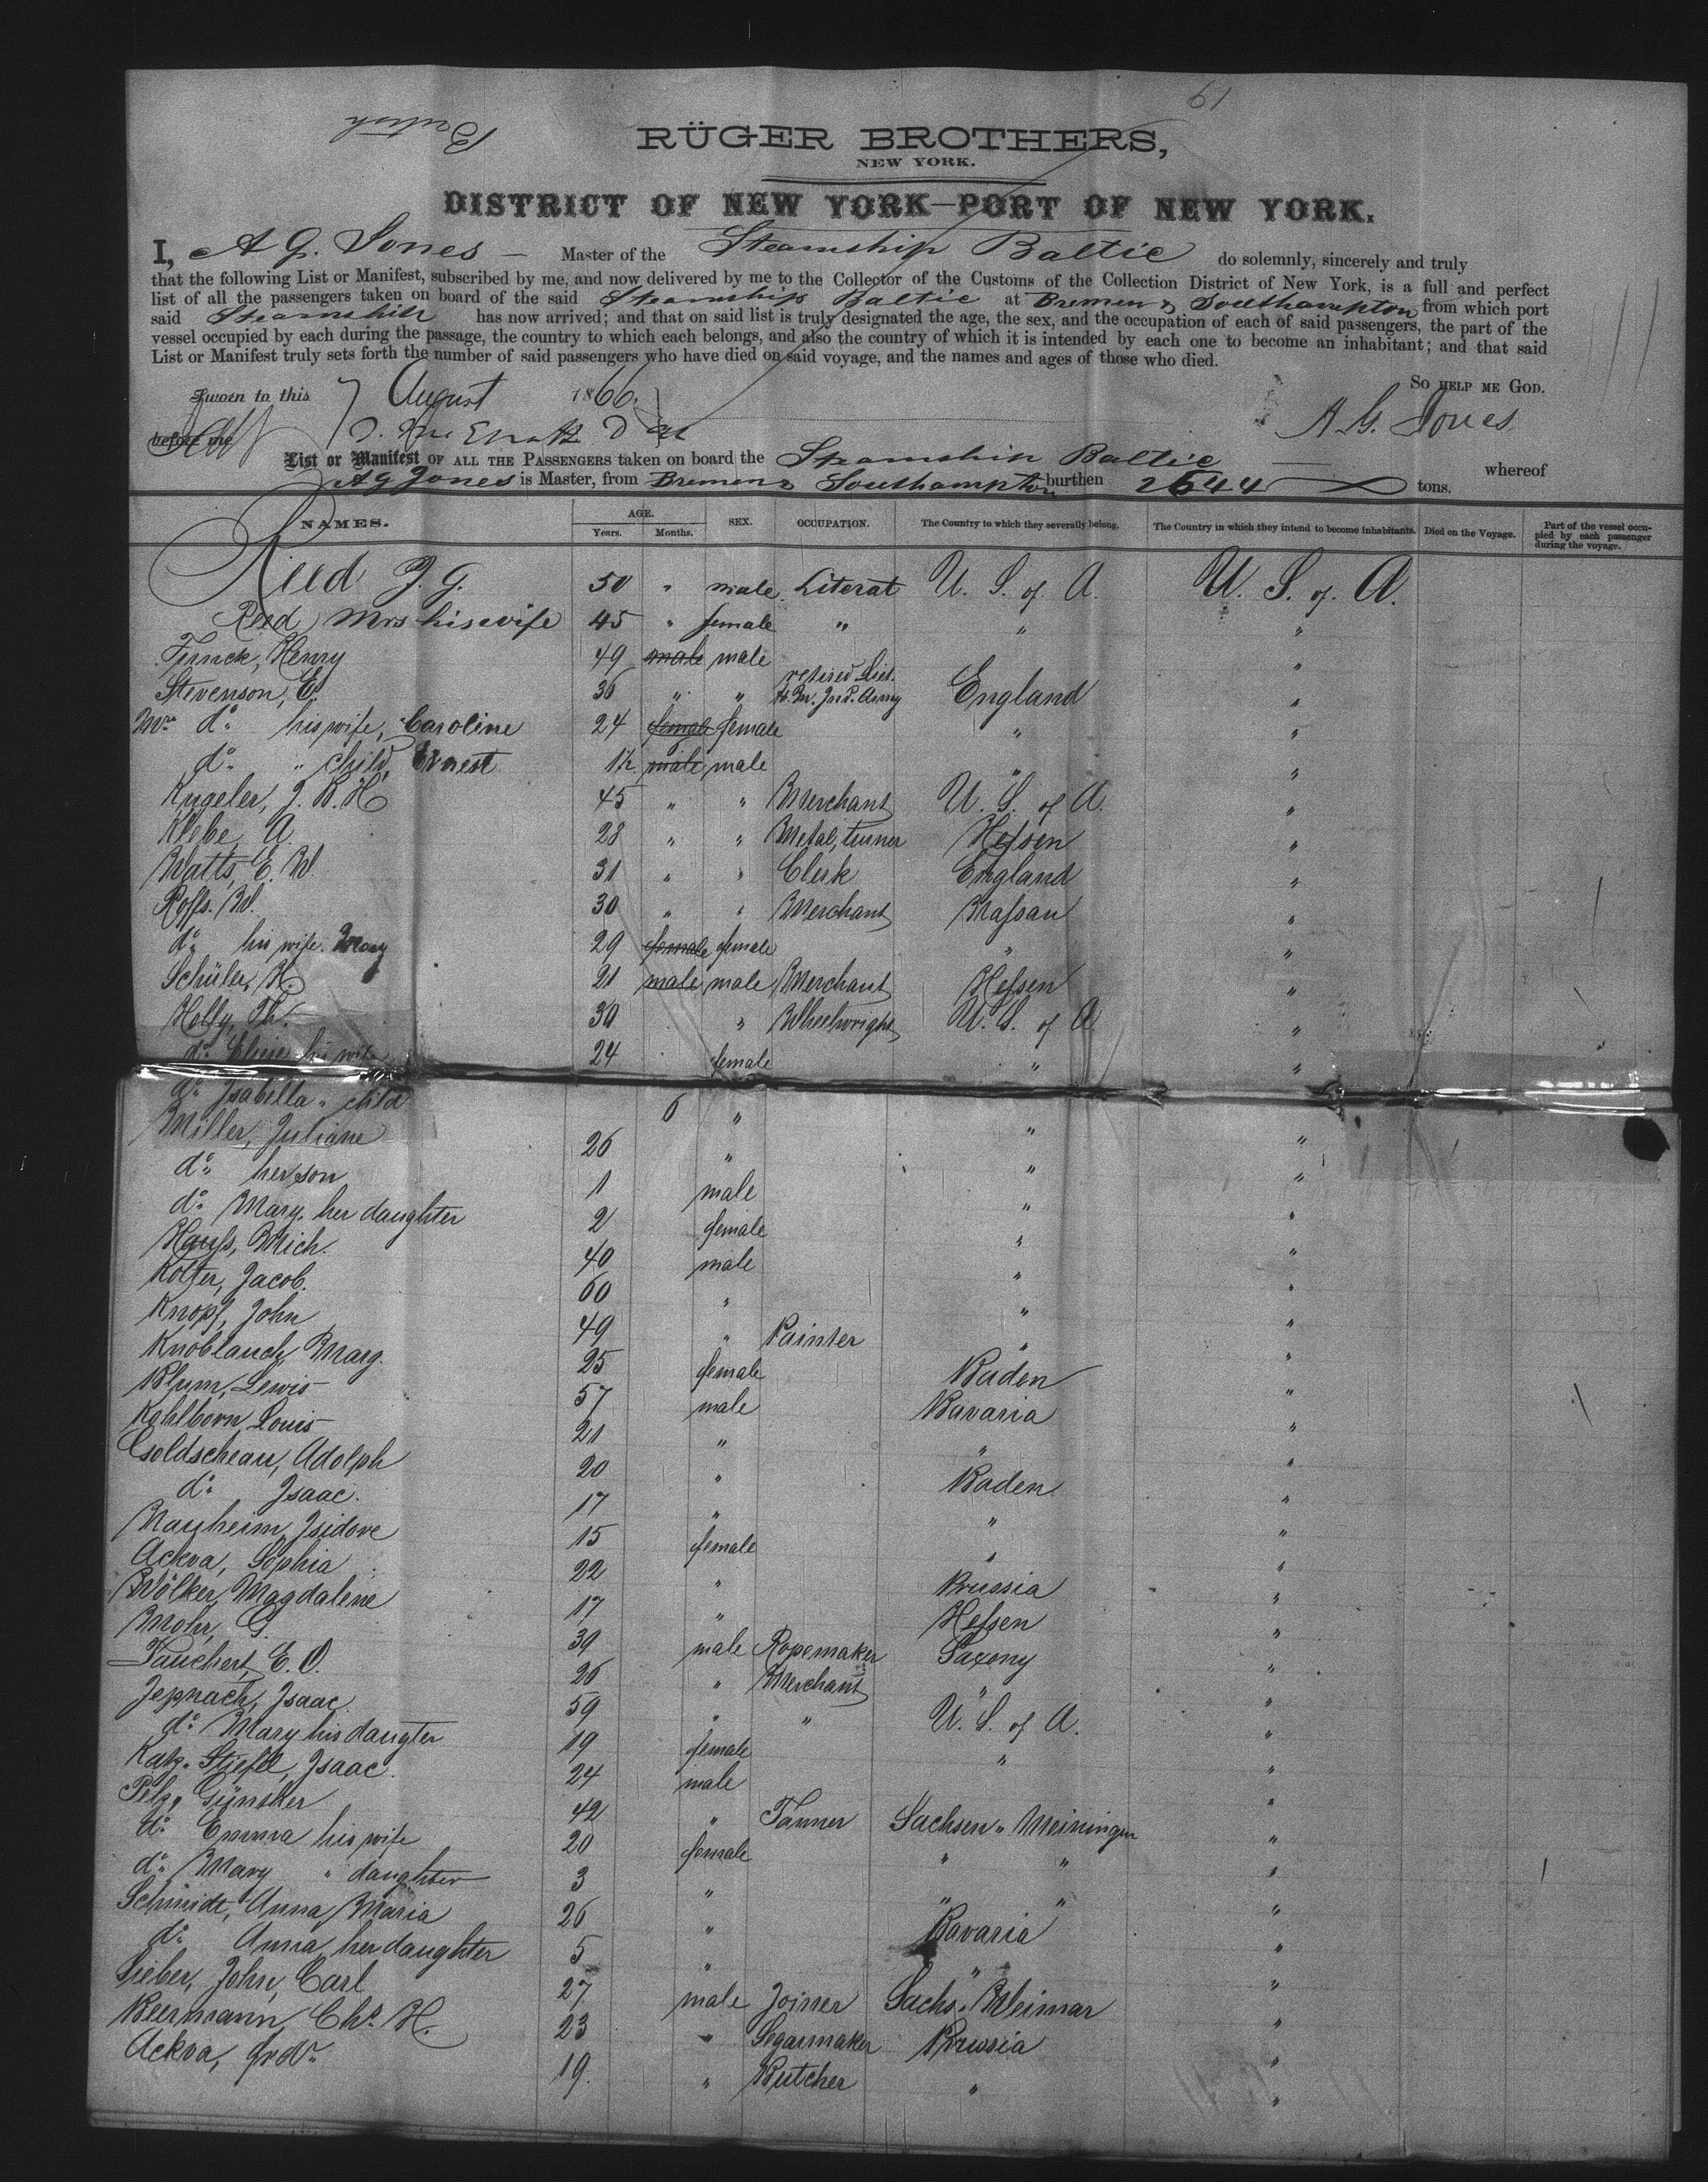 61
British
RÜGER BROTHERS,
NEW YORK.
DISTRICT OF NEW YORK—PORT OF NEW YORK.
I, A G. Jones — Master of the Steamship Baltic do solemnly, sincerely and truly
that the following List or Manifest, subscribed by me, and now delivered by me to the Collector of the Customs of the Collection District of New York, is a full and perfect
list of all the passengers taken on board of the said Steamship Baltic at Bremen & Southampton from which port
said Steamship has now arrived; and that on said list is truly designated the age, the sex, and the occupation of each of said passengers, the part of the
vessel occupied by each during the passage, the country to which each belongs, and also the country of which it is intended by each one to become an inhabitant; and that said
List or Manifest truly sets forth the number of said passengers who have died on said voyage, and the names and ages of those who died.
So help me God.
Sworn to this 7 August 1866.
A. G. Jones
before me
List or Manifest OF ALL THE PASSENGERS taken on board the Steamship Baltic whereof
A G Jones is Master, from Bremen & Southampton burthen 2644 tons.
NAMES. AGE. Years. Months. SEX. OCCUPATION. The Country to which they severally belong. The Country in which they intend to become inhabitants. Died on the Voyage. Part of the vessel occupied by each passenger during the voyage.
Reed J. G. 50 " male Literat U. S. of A. U. S. of A.
Reed Mrs his wife 45 " female " " "
Finck, Henry 49 male male "
Stevenson, E. 36 " " retired Lieut. H. M. Ind. Army England "
Mrs do. his wife, Caroline 24 female female " "
do. " child, Ernest 1½ male male " "
Kugeler, J. B. H 45 " " Merchant U. S. of A. "
Klebe, A. 28 " " Metal, turner Hessen "
Watts, E. W. 31 " " Clerk England "
Roffs. W. 30 " " Merchant Nassau "
do. his wife. Mary 29 female female " "
Schüler, H. 21 male male Merchant Hessen "
Holly, Th. 30 " Wheelwright U. S. of A. "
do. Elise his wife 24 female " "
do. Isabella " child 6 " " "
Miller, Juliane 26 " " "
do. her son 1 male " "
do. Mary. her daughter 2 female " "
Hauss, Mich. 40 male " "
Kolter, Jacob. 60 " " "
Knopf, John 49 " Painter " "
Knoblauch, Marg. 25 female Baden "
Blum, Lewis 57 male Bavaria "
Kahlborn, Louis 21 " " "
Goldscheau, Adolph 20 " Baden "
do. Isaac. 17 " " "
Mayheim, Isidore 15 female " "
Ackva, Sophia 22 " Prussia "
Wölker, Magdalene 17 " Hessen "
Mohr, G. 39 male Ropemaker Saxony "
Tauchert, E. O. 26 " Merchant " "
Jepnach, Isaac 59 " " U. S. of A. "
do. Mary his daugter 19 female " "
Katz. Stiefel, Isaac. 24 male "
Pelz, Günsker 42 " Tanner Sachsen " Meiningen "
do. Emma his wife 20 female " " "
do. Mary " daughter 3 " " " "
Schmidt, Anna Maria 26 " Bavaria "
do. Anna, her daughter 5 " " "
Sieber, John, Carl 27 male Joiner Sachs. Weimar "
Beermann, Chs. H. 23 " Segarmaker Prussia "
Ackva, Fredr. 19. " Butcher " "